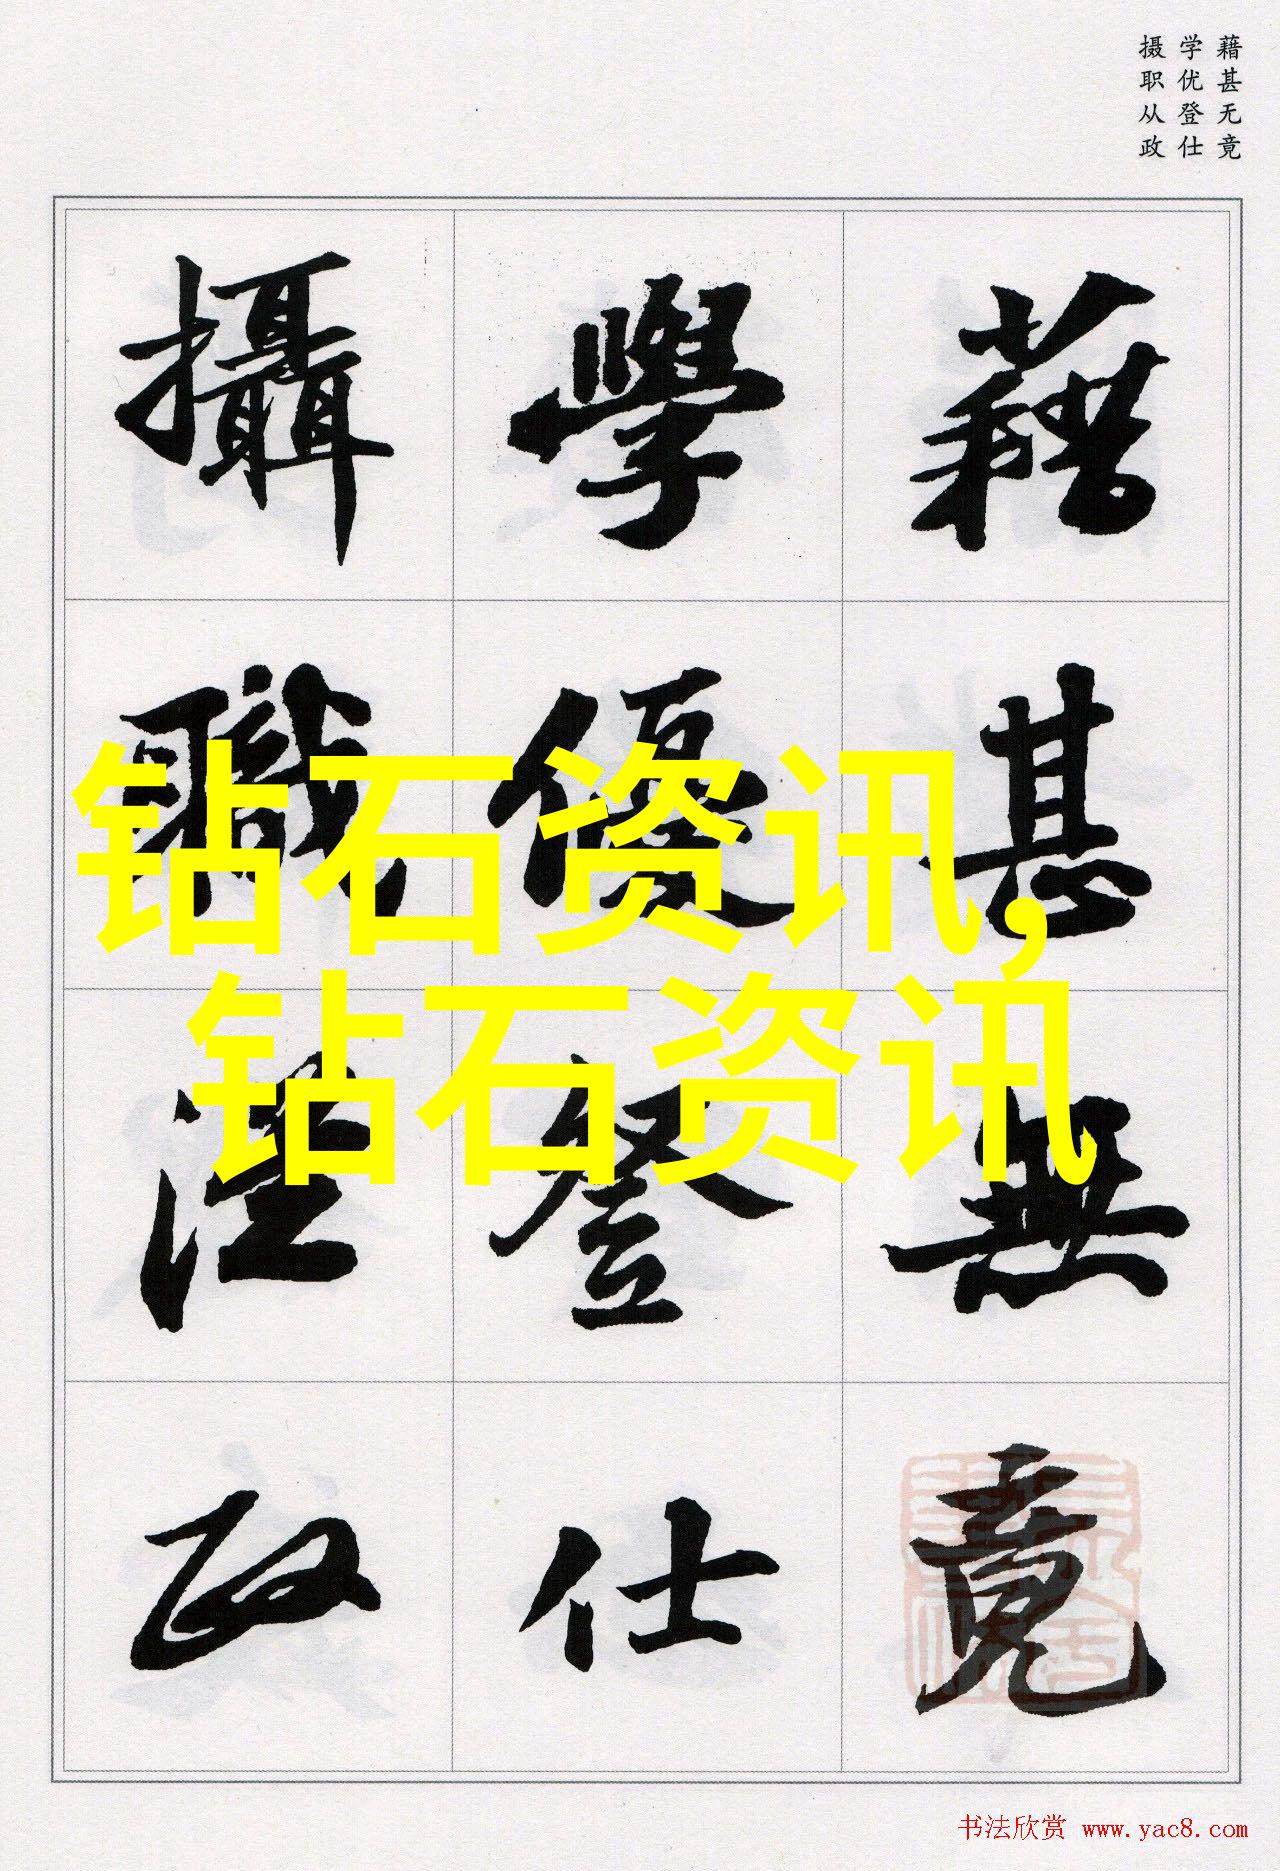 藉甚无竟
学优登仕
摄职从政
藉甚無竟
學優登仕
攝職從政
钻石资讯,
钻石资讯
书法欣赏 www.yac8.com